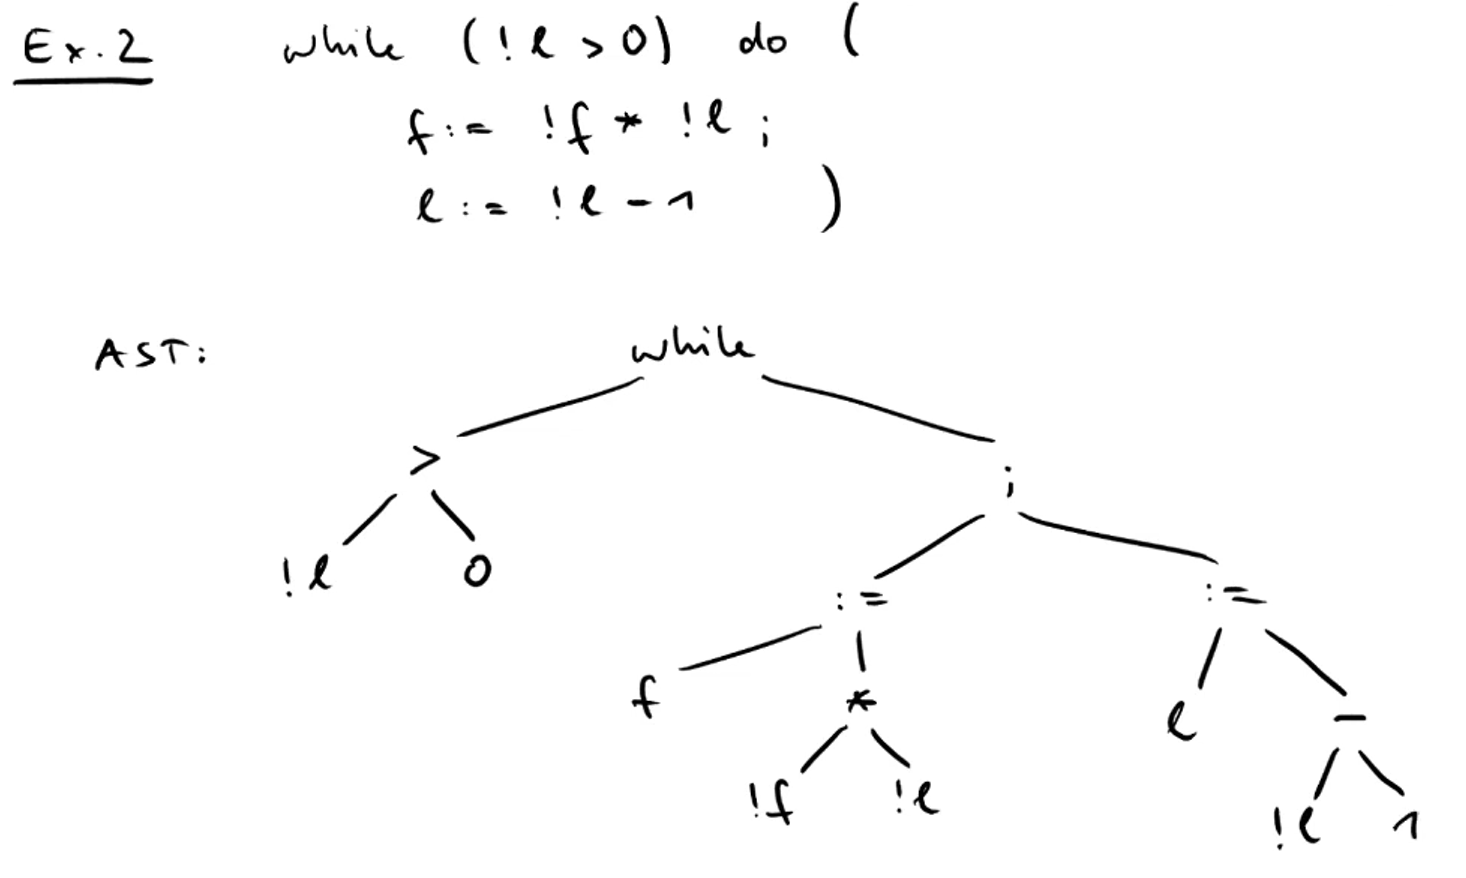 Ex. 2 while (!l > 0) do (
f := !f * !l ;
l := !l - 1 )
AST: while
> ;
!l 0 := :=
f * l -
!f !l !l 1